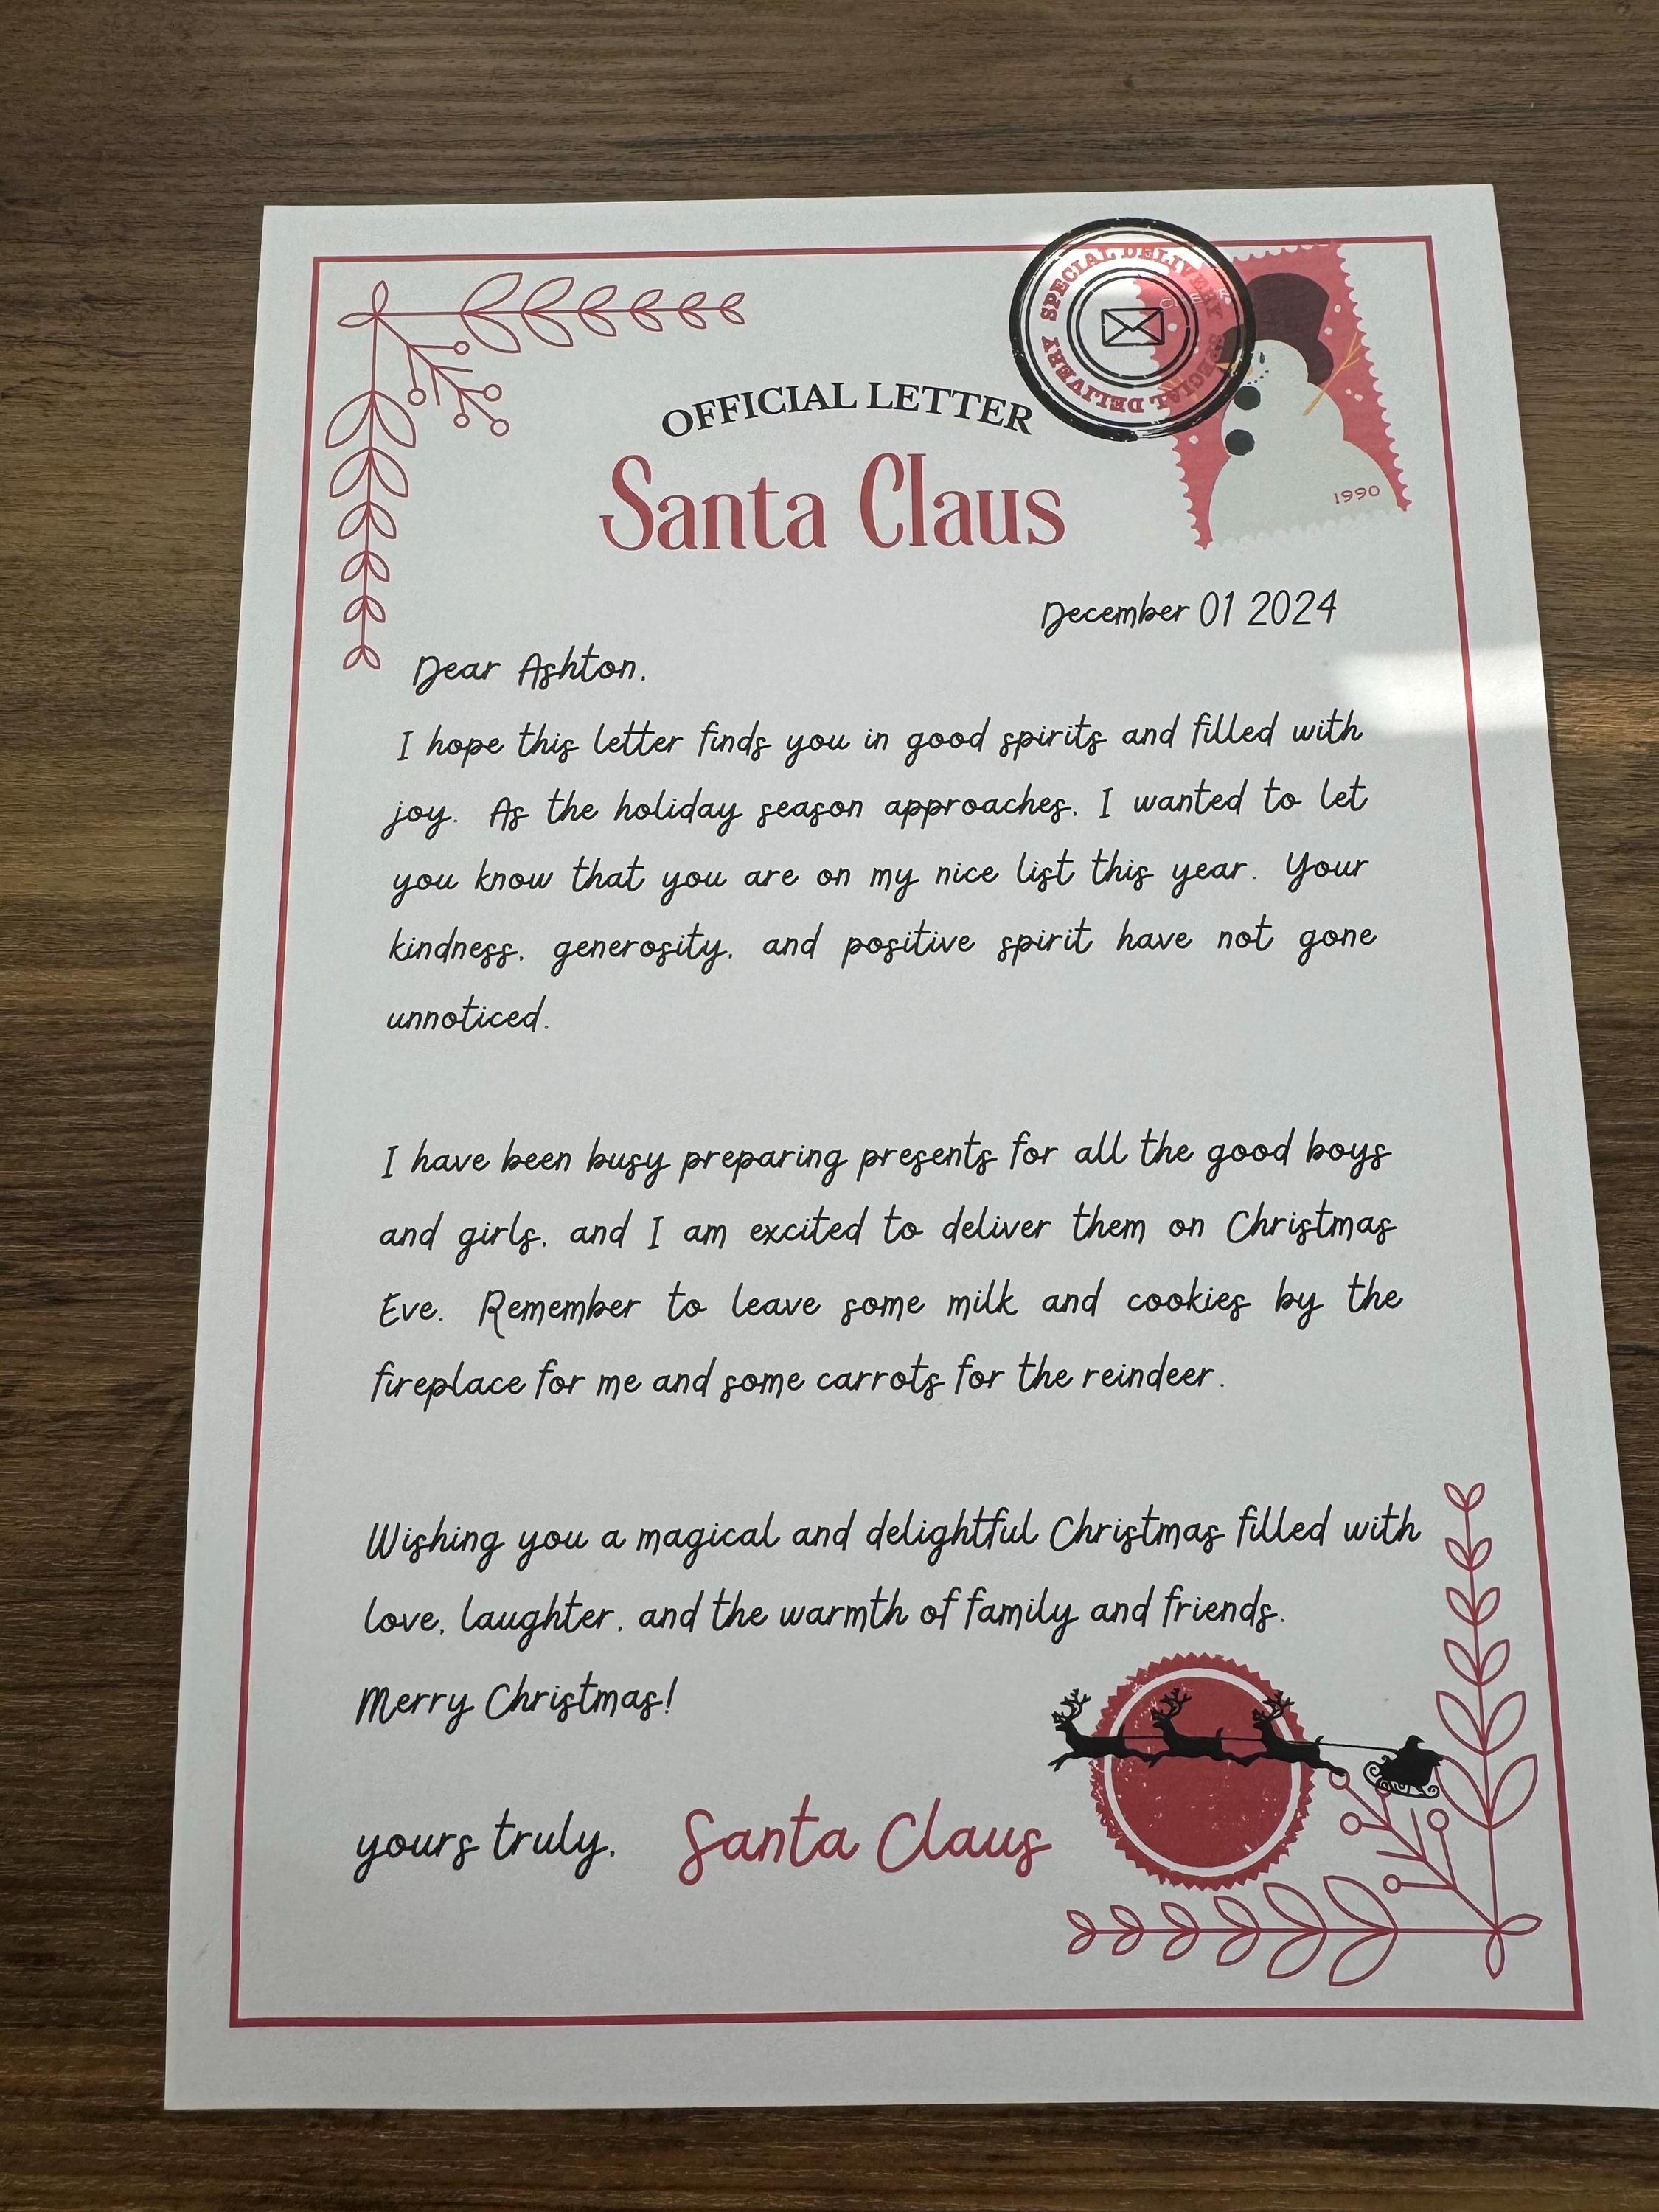 SPECIAL DELIVERY SPECIAL DELIVERY
OFFICIAL LETTER
Santa Claus
1990
December 01 2024
Dear Ashton,
I hope this letter finds you in good spirits and filled with
joy. As the holiday season approaches, I wanted to let
you know that you are on my nice list this year. Your
kindness, generosity, and positive spirit have not gone
unnoticed.
I have been busy preparing presents for all the good boys
and girls, and I am excited to deliver them on Christmas
Eve. Remember to leave some milk and cookies by the
fireplace for me and some carrots for the reindeer.
Wishing you a magical and delightful Christmas filled with
love, laughter, and the warmth of family and friends.
Merry Christmas!
yours truly, Santa Claus